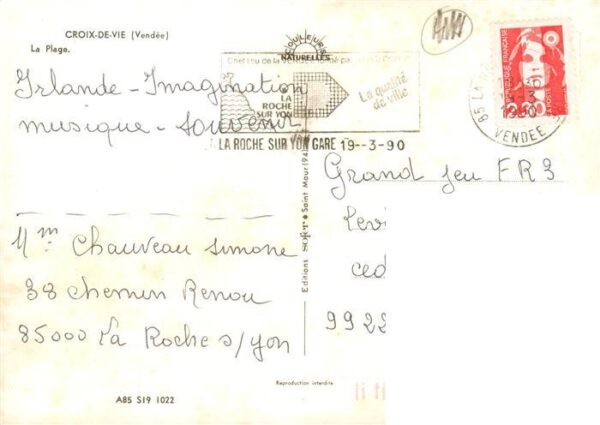 CROIX-DE-VIE (Vendée)
La Plage.
COULEURS
NATURELLES
REPUBLIQUE FRANÇAISE
Irlande - Imagination
musique - souvenir
LA
ROCHE
SUR YON
La qualité
de ville
85 LA
1990
VENDEE
LA ROCHE SUR YON GARE 19--3-90
Grand jeu FR3
Levi
ced
9922
Mme Chauveau Simone
38 chemin Renou
85000 La Roche s/yon
Editions Saint Maur (94)
Reproduction interdite
A85 S19 1022